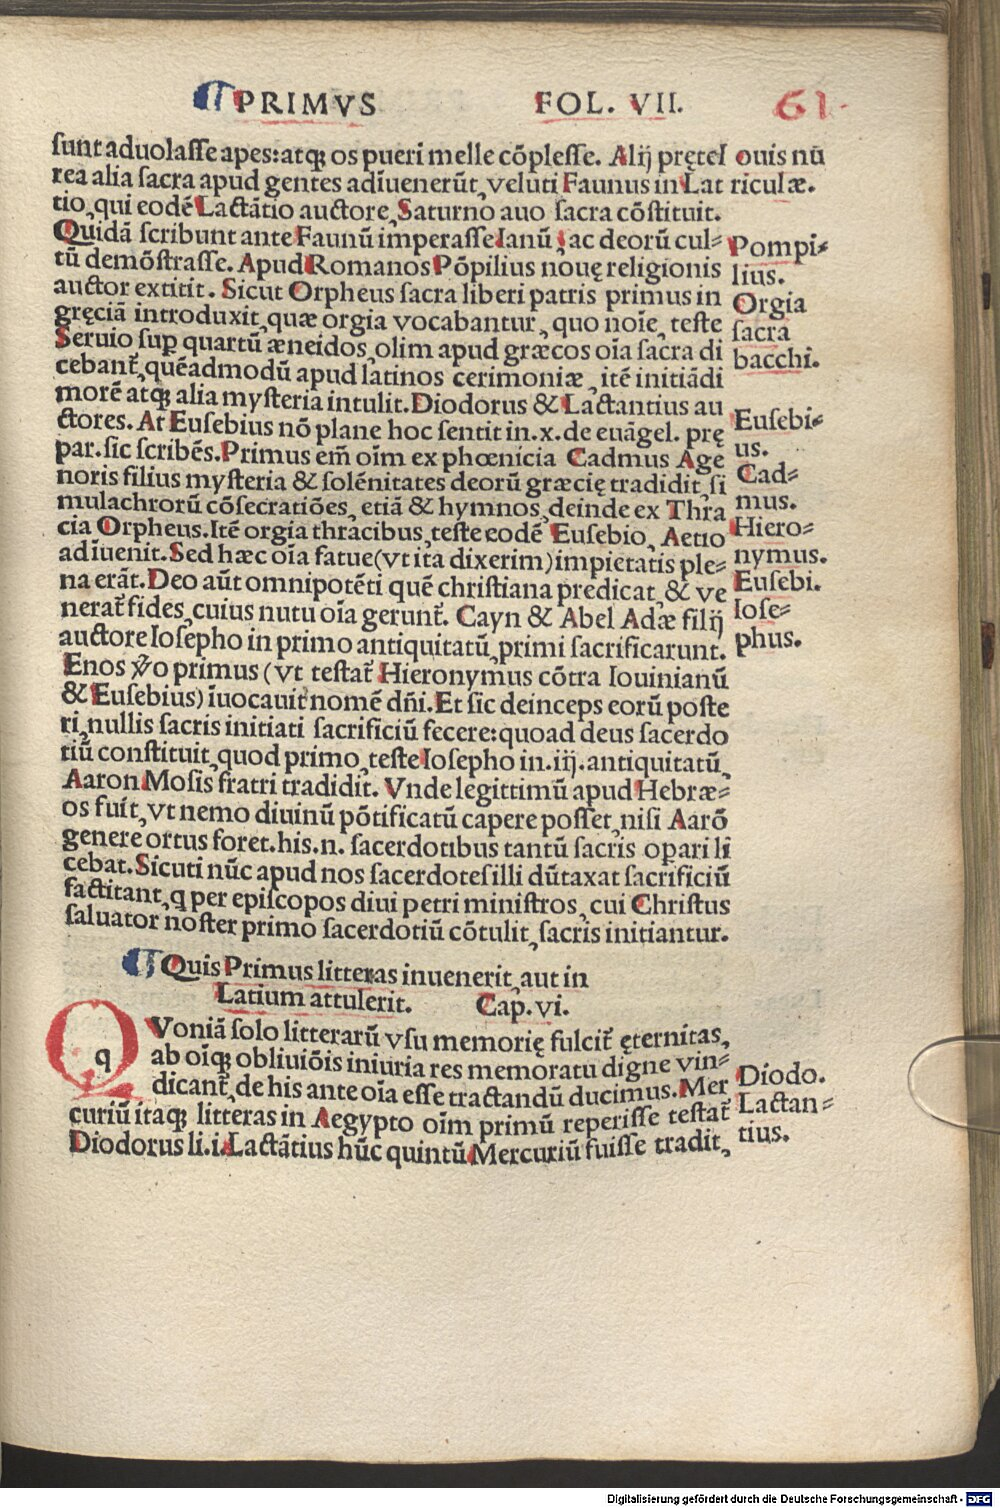 PRIMVS FOL. VII. 61.
sunt aduolasse apes: atqꝫ os pueri melle cõplesse. Alij pręteI
rea alia sacra apud gentes adĩuenerũt, veluti Faunus in Lat
tio, qui eodẽ Lactãtio auctore, Saturno auo sacra cõstituit.
Quidã scribunt ante Faunũ imperasse Ianũ, ac deorũ cul⸗
tũ demõstrasse. Apud Romanos Põpilius nouę religionis
auctor extitit. Sicut Orpheus sacra liberi patris primus in
gręciã introduxit, quæ orgia vocabantur, quo noĩe, teste
Seruio sup quartũ æneidos, olim apud græcos oĩa sacra di
cebant᷑, quẽadmodũ apud latinos cerimoniæ, itẽ initiãdi
morẽ atqꝫ alia mysteria intulit. Diodorus & Lactantius au
ctores. At Eusebius nõ plane hoc sentit in. x. de euãgel. prę
par. sic scribẽs. Primus em̃ oĩm ex phœnicia Cadmus Age
noris filius mysteria & solẽnitates deorũ græcię tradidit, si
mulachrorũ cõsecratiões, etiã & hymnos, deinde ex Thra
cia Orpheus. Itẽ orgia thracibus, teste eodẽ Eusebio, Aetio
adĩuenit. Sed hæc oĩa fatue (vt ita dixerim) impietatis ple⸗
na erãt. Deo aũt omnipotẽti quẽ christiana predicat, & ve
nerat᷑ fides, cuius nutu oĩa gerunt᷑. Cayn & Abel Adæ filij
auctore Iosepho in primo antiquitatũ, primi sacrificarunt.
Enos v̉o primus (vt testat᷑ Hieronymus cõtra Iouinianũ
& Eusebius) ĩuocauit nomẽ dñi. Et sic deinceps eorũ poste
ri, nullis sacris initiati sacrificiũ fecere: quoad deus sacerdo
tiũ constituit, quod primo, teste Iosepho in. iij. antiquitatũ,
Aaron Mosis fratri tradidit. Vnde legittimũ apud Hebræ⸗
os fuit, vt nemo diuinũ põtificatũ capere posset, nisi Aarõ
genere ortus foret. his. n. sacerdotibus tantũ sacris opari li
cebat. Sicuti nũc apud nos sacerdotes illi dũtaxat sacrificiũ
factitant, q per episcopos diui petri ministros, cui Christus
saluator noster primo sacerdotiũ cõtulit, sacris initiantur.
Quis Primus litteras inuenerit, aut in
Latium attulerit. Cap. vi.
Q q Voniã solo litterarũ vsu memorię fulcit᷑ ęternitas,
ab oĩqꝫ obliuiõis iniuria res memoratu digne vin⸗
dicant᷑, de his ante oĩa esse tractandũ ducimus. Mer
curiũ itaqꝫ litteras in Aegypto oĩm primũ reperisse testat᷑
Diodorus li. i. Lactãtius hũc quintũ Mercuriũ fuisse tradit,
ouis nũ
riculæ.
Pompi⸗
lius.
Orgia
sacra
bacchi.
Eusebi⸗
us.
Cad⸗
mus.
Hiero⸗
nymus.
Eusebi.
Iose⸗
phus.
Diodo.
Lactan⸗
tius.
Digitalisierung gefördert durch die Deutsche Forschungsgemeinschaft - DFG